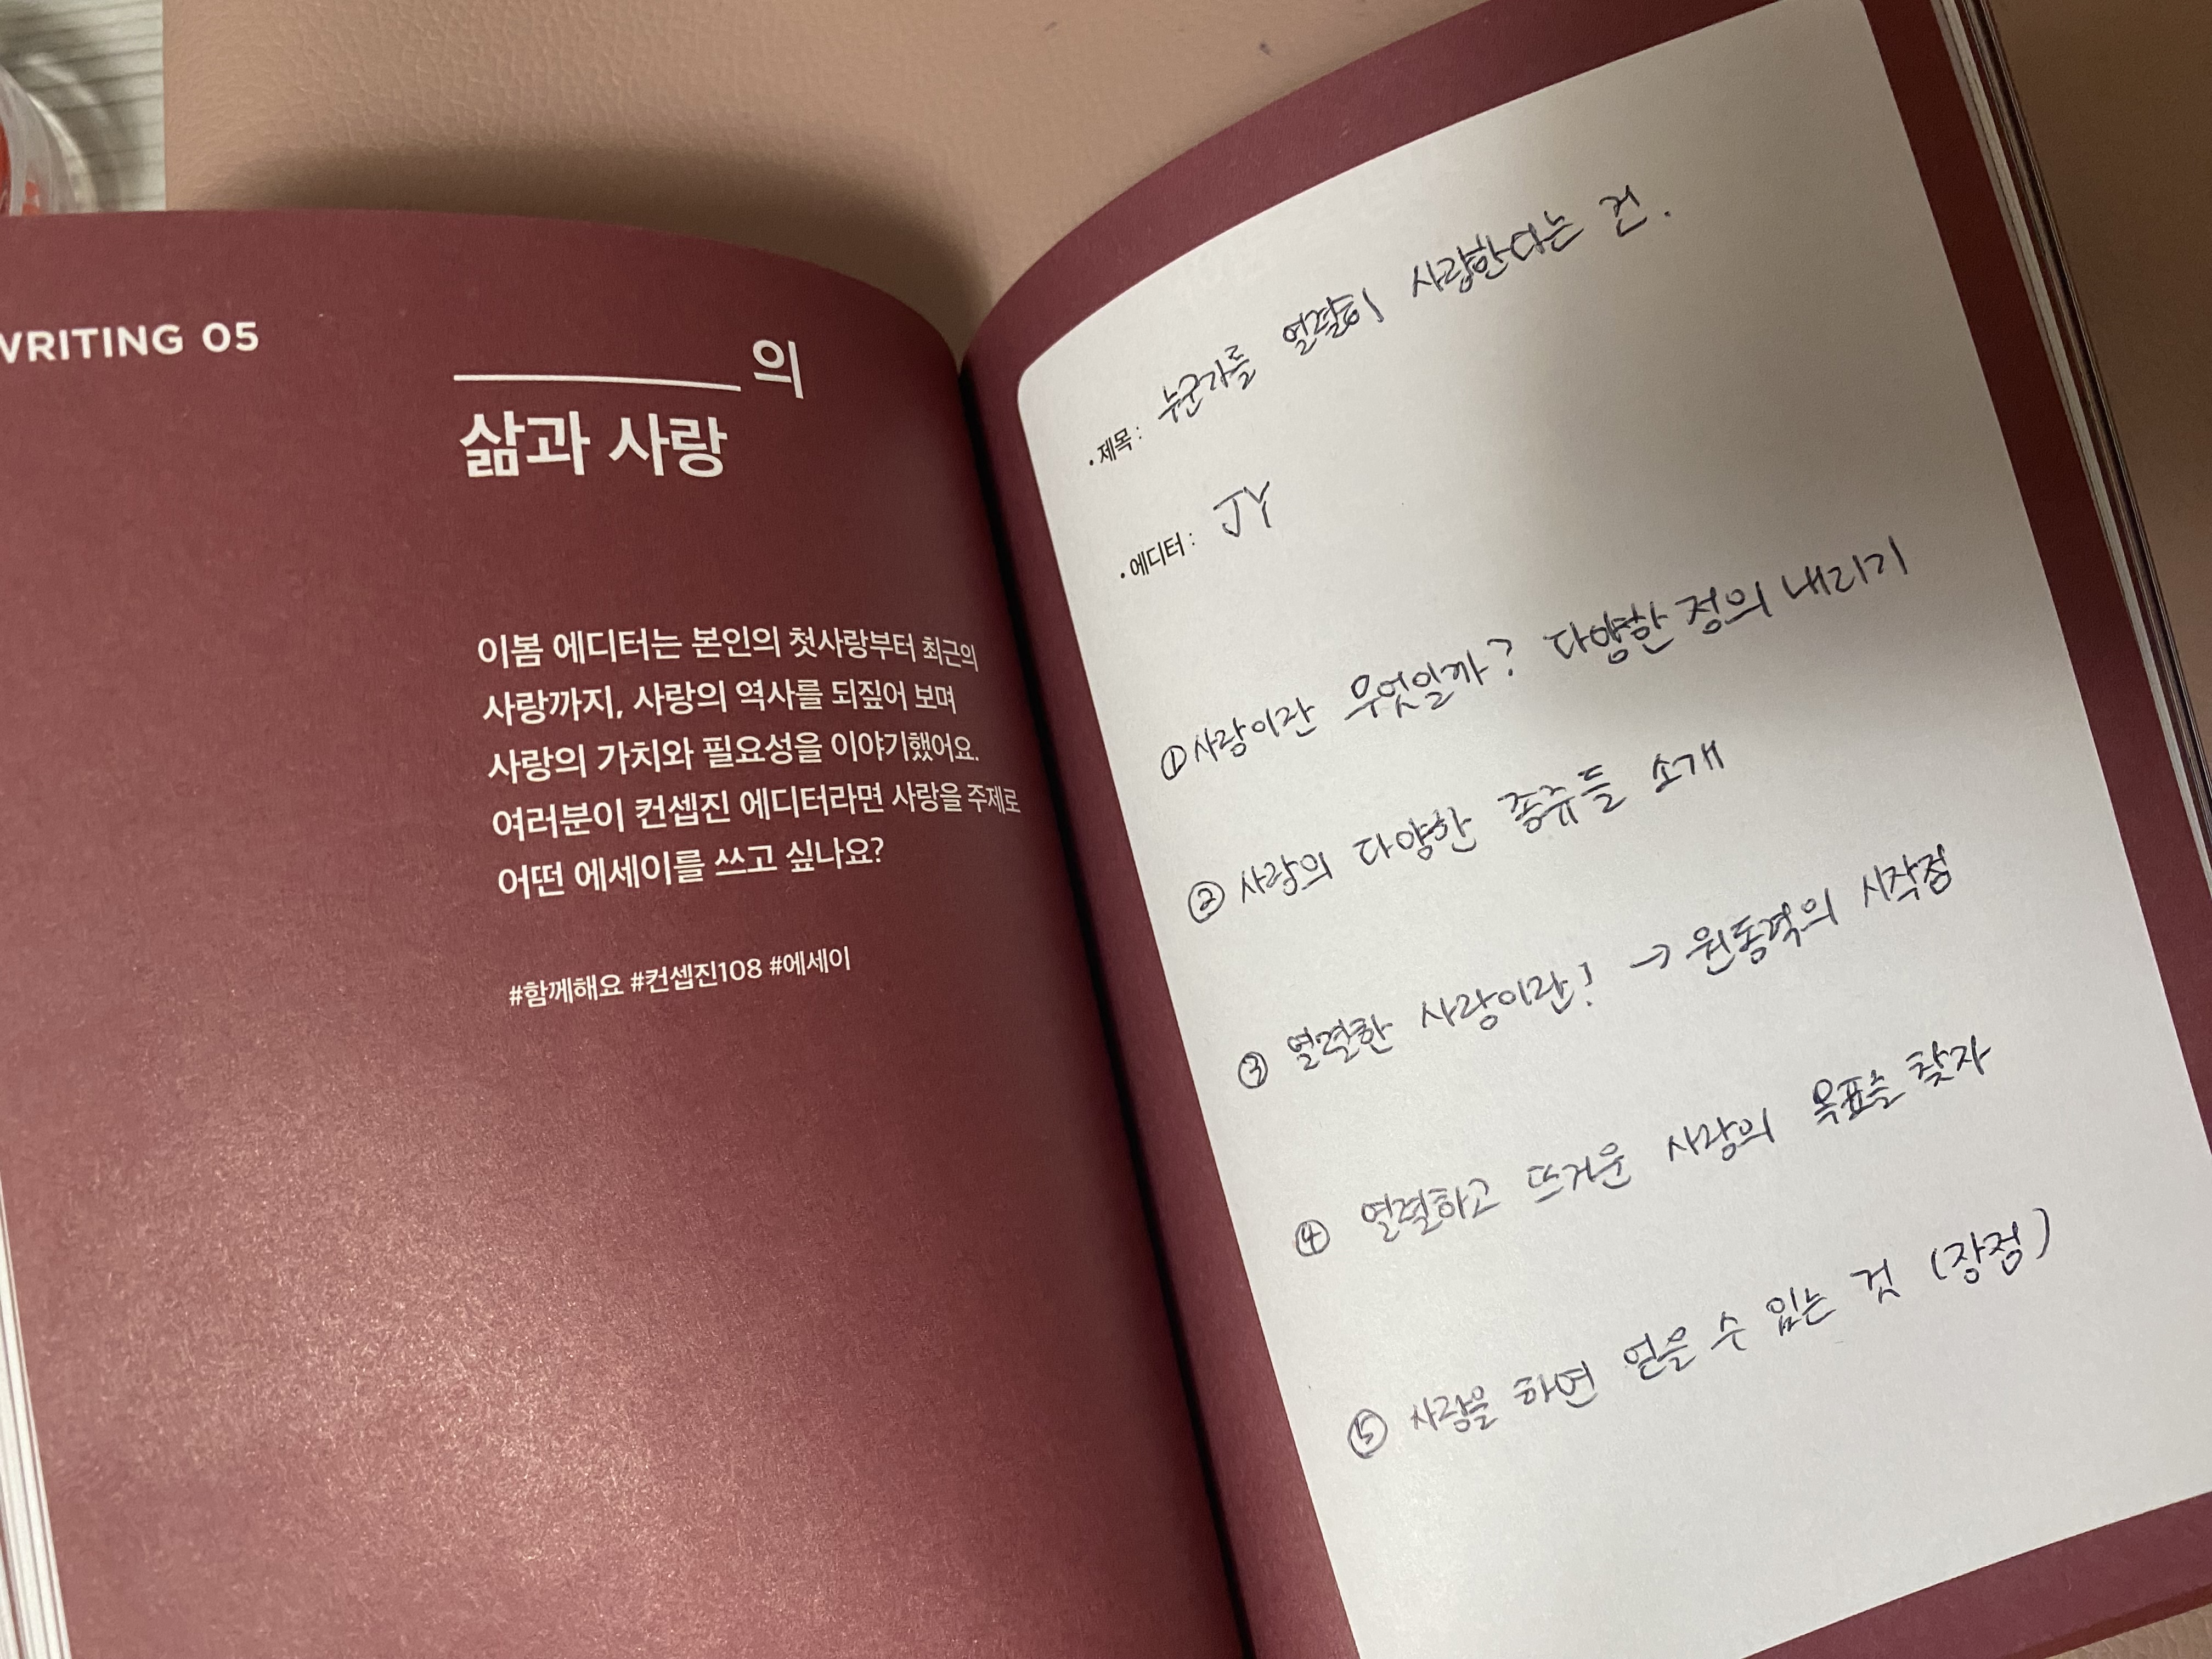 WRITING 05
______의
삶과 사랑
이봄 에디터는 본인의 첫사랑부터 최근의
사랑까지, 사랑의 역사를 되짚어 보며
사랑의 가치와 필요성을 이야기했어요.
여러분이 컨셉진 에디터라면 사랑을 주제로
어떤 에세이를 쓰고 싶나요?
#함께해요 #컨셉진108 #에세이
• 제목 : 누군가를 열렬히 사랑한다는 건.
• 에디터 : JY
① 사랑이란 무엇일까? 다양한 정의 내리기
② 사랑의 다양한 종류들 소개
③ 열렬한 사랑이란! → 원동력의 시작점
④ 열렬하고 뜨거운 사랑의 목표를 찾자
⑤ 사랑을 하면 얻을 수 있는 것 (장점)